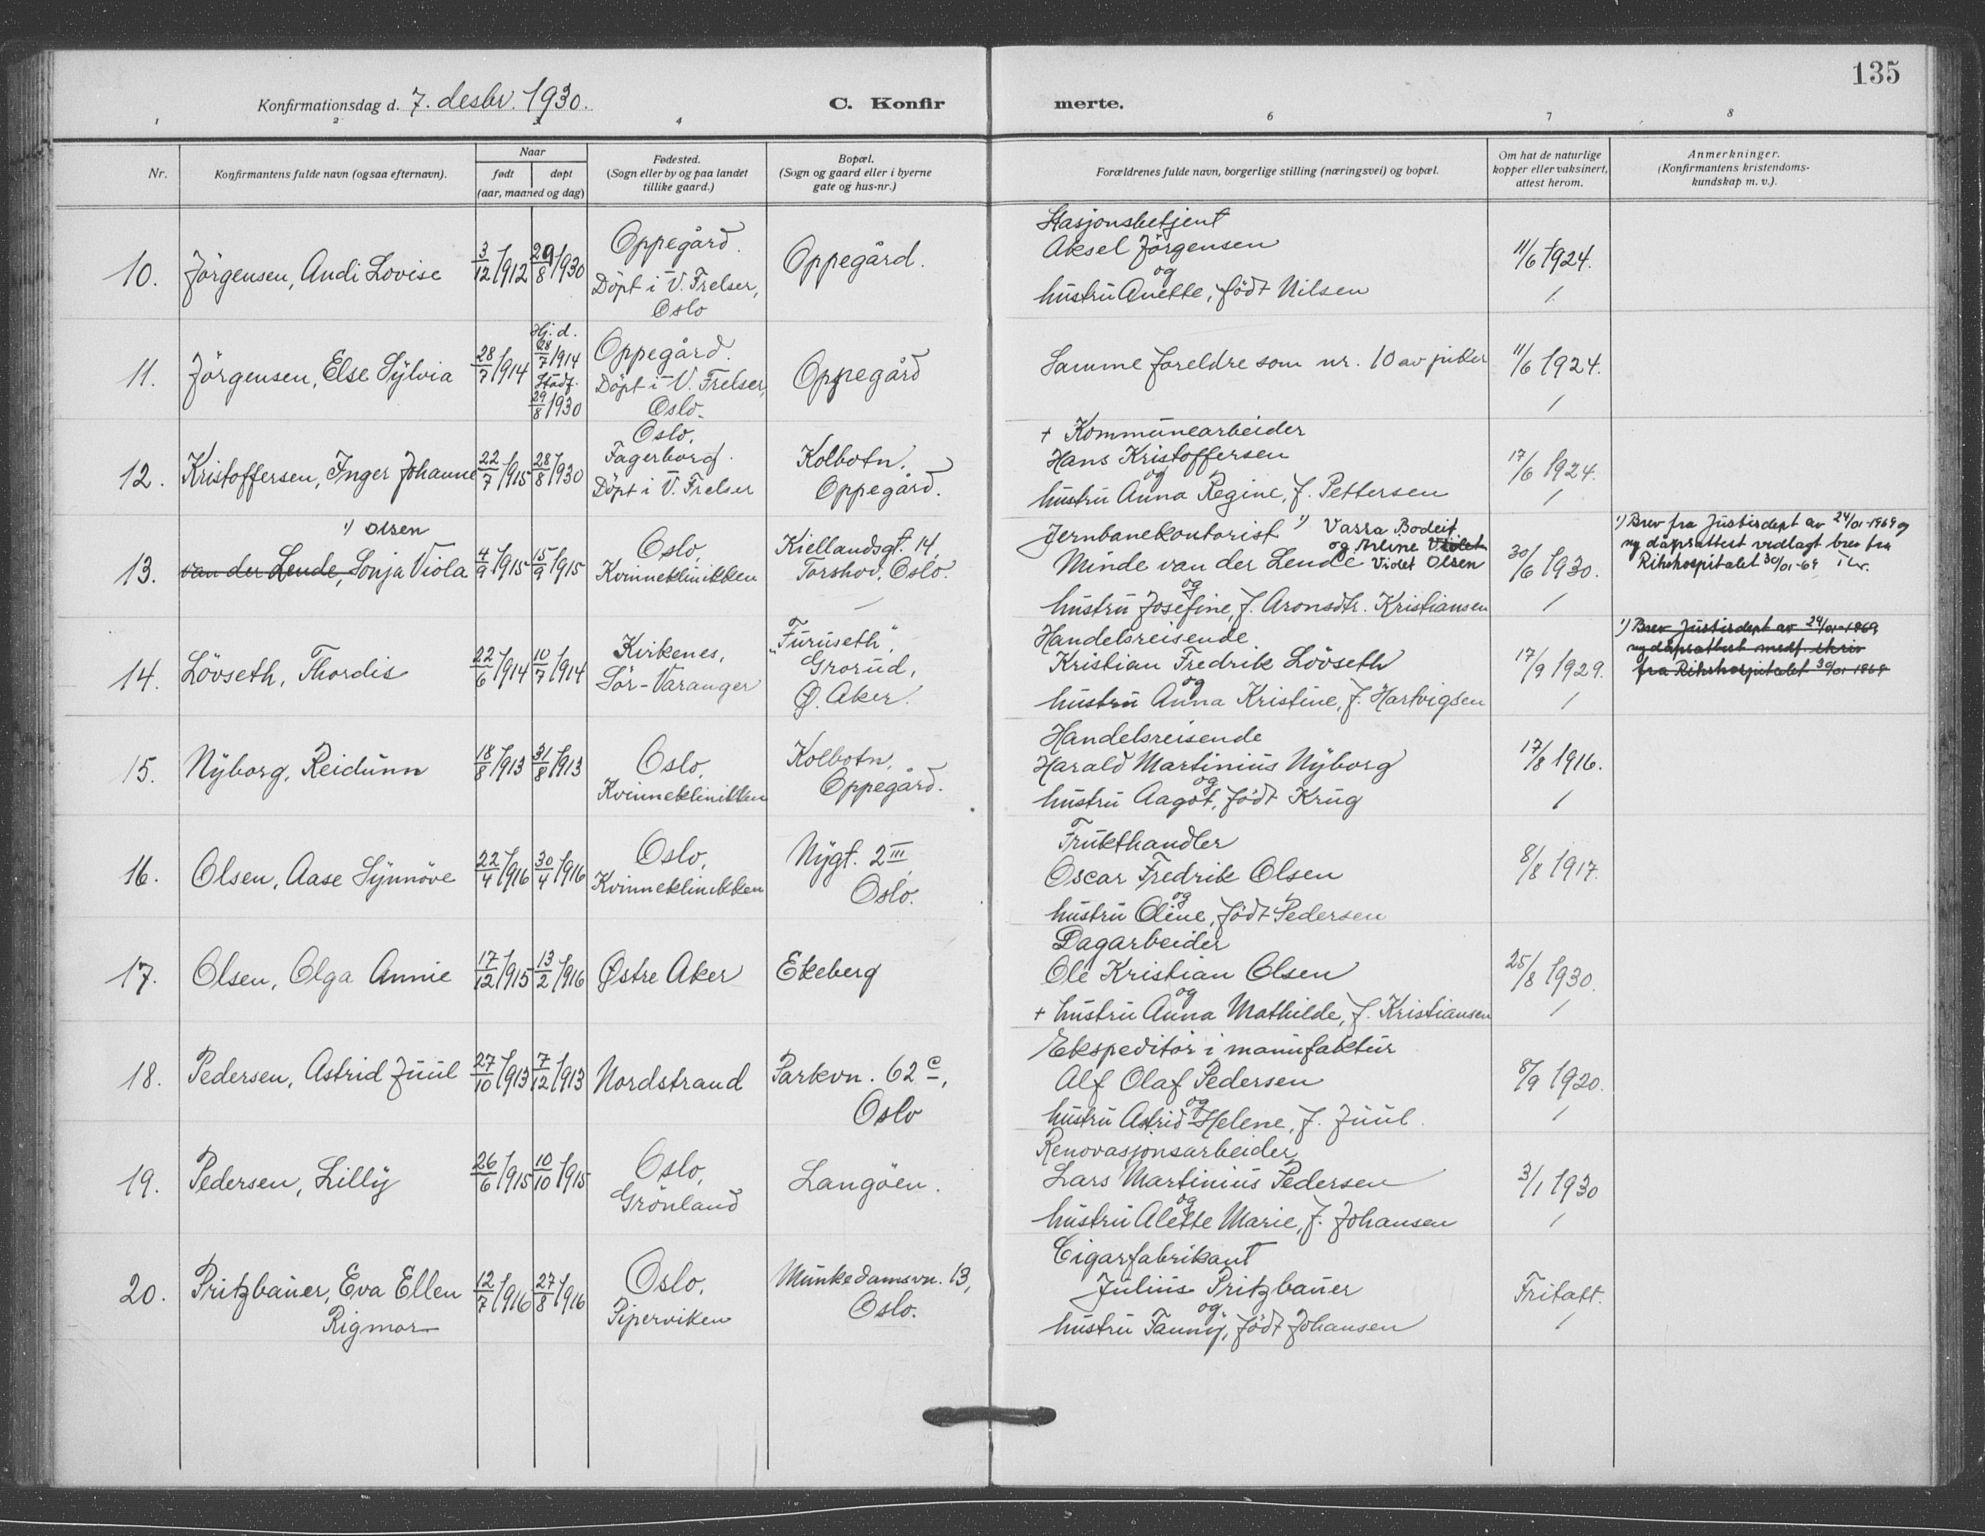 135
Konfirmationsdag d. 7. desbr. 1930.
C. Konfir merte.
1 2 3 4 6 7 8
Nr.
Konfirmantens fulde navn (ogsaa efternavn).
Naar
født
døpt
(aar, maaned og dag)
Fødested.
(Sogn eller by og paa landet
tillike gaard.)
Bopæl.
(Sogn og gaard eller i byerne
gate og hus-nr.)
Forældrenes fulde navn, borgerlige stilling (næringsvei) og bopæl.
Om hat de naturlige
kopper eller vaksinert,
attest herom.
Anmerkninger.
(Konfirmantens kristendoms-
kundskap m. v.).
10. Jörgensen, Andi Lovise
3/12 1912
29/8 1930
Oppegård.
Döpt i V. Frelser,
Oslo
Oppegård.
Stasjonsbetjent
Aksel Jörgensen
og
hustru Anette, født Nilsen
11/6 1924.
/
11. Jörgensen, Else Sylvia
28/7 1914
Hj. d.
28/7 1914
Stadf.
29/8 1930
Oppegård.
Döpt i V. Frelser,
Oslo.
Oppegård
Samme foreldre som nr. 10 av piker
11/6 1924.
/
12. Kristoffersen, Inger Johanne
22/7 1915
28/8 1930
Oslo,
Fagerborg.
Döpt i V. Frelser
Kolbotn,
Oppegård.
+ Kommunearbeider
Hans Kristoffersen
og
hustru Anna Regine, f. Pettersen
17/6 1924.
/
1) Olsen
13. van der Lende, Sonja Viola
4/9 1915
15/9 1915
Oslo,
Kvinneklinikken
Kiellandsgt. 14,
Torshov, Oslo.
Jernbanekontorist 1) Vassa Bodeit
og Arline Violet
Minde van der Lende Violet Olsen
og
hustru Josefine, f. Aronsdtr. Kristiansen
30/6 1930.
/
1) Brev fra Justisdept av 24/01-1969 og
ny dåpsattest vidlagt brev fra
Rikshospitalet 30/01-69
14. Lövseth, Thordis
22/6 1914
10/7 1914
Kirkenes,
Sör-Varanger
"Furuseth",
Grorud,
Ø. Aker.
Handelsreisende
Kristian Fredrik Lövseth
og
hustru Anna Kristine, f. Hartvigsen
17/9 1929.
/
1) Brev Justisdept av 24/01-1969
ny dåpsattest medf. skriv
fra Rikshospitalet 30/01 1969
15. Nyborg, Reidunn
18/8 1913
31/8 1913
Oslo,
Kvinneklinikken
Kolbotn,
Oppegård.
Handelsreisende
Harald Martinius Nyborg
og
hustru Aagot, født Krug
17/8 1916.
/
16. Olsen, Aase Synnöve
22/4 1916
30/4 1916
Oslo,
Kvinneklinikken
Nygt. 2 III,
Oslo.
Frukthandler
Oscar Fredrik Olsen
og
hustru Oline, født Pedersen
8/8 1917.
17. Olsen, Olga Annie
17/12 1915
13/2 1916
Østre Aker
Ekeberg
Dagarbeider
Ole Kristian Olsen
og
+ hustru Anna Mathilde, f. Kristiansen
25/8 1930.
/
18. Pedersen, Astrid Juul
27/10 1913
7/12 1913
Nordstrand
Parkvn. 62 c,
Oslo
Ekspeditør i manufaktur
Alf Olaf Pedersen
og
hustru Astrid Helene, f. Juul.
8/9 1920.
/
19. Pedersen, Lilly
26/6 1915
10/10 1915
Oslo,
Grönland
Langöen.
Renovasjonsarbeider
Lars Martinius Pedersen
og
hustru Alette Marie, f. Johansen
3/1 1930
/
20. Pritzbauer, Eva Ellen
Rigmor
12/7 1916
27/8 1916
Oslo,
Piperviken
Munkedamsvn. 13,
Oslo.
Cigarfabrikant
Julius Pritzbauer
og
hustru Fanny, født Johansen
Fritatt.
/